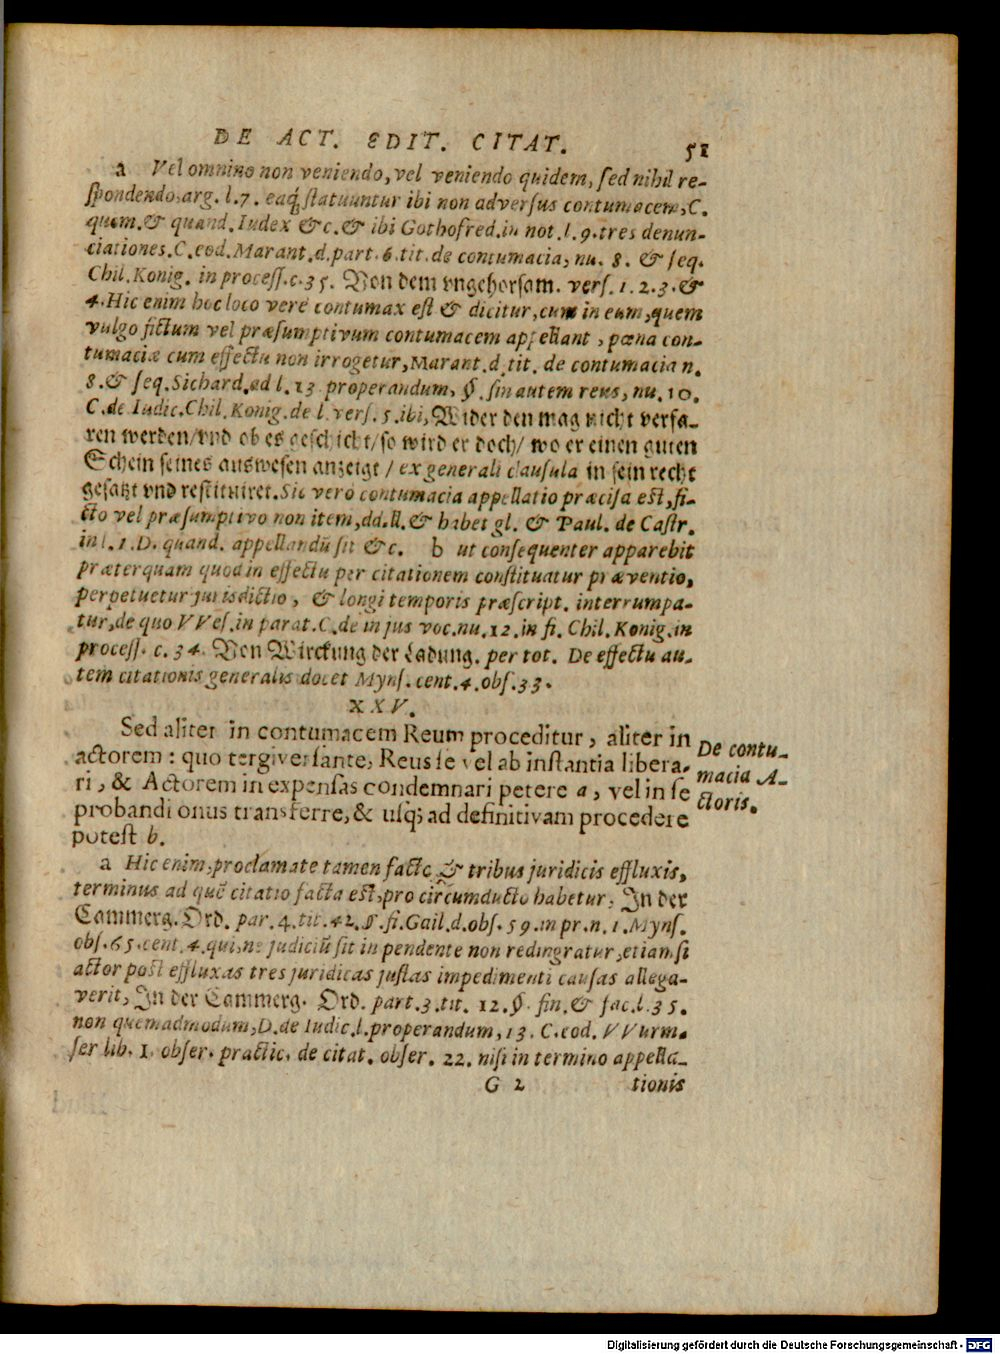 DE ACT. EDIT. CITAT. 51
a Vel omnino non veniendo, vel veniendo quidem, sed nihil re-
spondendo, arg. l. 7. eaq́; statuuntur ibi non adversus contumacem, C.
quom. & quand. Iudex &c. & ibi Gothofred. in not. l. 9. tres denun-
ciationes. C. eod. Marant. d. part. 6. tit. de contumacia, nu. 8. & seq.
Chil. Konig. in process. c. 35. Von dem vngehorsam. vers. 1. 2. 3. &
4. Hic enim hoc loco vere contumax est & dicitur, cum in eum, quem
vulgo fictum vel præsumptivum contumacem appellant, pœna con-
tumaciæ cum effectu non irrogetur, Marant. d. tit. de contumacia n.
8. & seq. Sichard. ad l. 13 properandum, §. sin autem reus, nu. 10.
C. de Iudic. Chil. Konig. de l. vers. 5. ibi, Wider den mag nicht verfa-
ren werden/ vnd ob es geschicht/ so wird er doch/ wo er einen guten
Schein seines auswesen anzeigt / ex generali clausula in sein recht
gesatzt vnd restituiret. Sic vero contumacia appellatio præcisa est, fi-
cto vel præsumptivo non item, dd. ll. & habet gl. & Paul. de Castr.
in l. 1. D. quand. appellandū sit &c. b ut consequenter apparebit
præterquam quod in effectu per citationem constituatur præventio,
perpetuetur jurisdictio, & longi temporis præscript. interrumpa-
tur, de quo VVes. in parat. C. de in jus voc. nu. 12. in fi. Chil. Konig. in
process. c. 34. Von Wirckung der Ladung. per tot. De effectu au-
tem citationis generalis docet Myns. cent. 4. obs. 33.
XXV.
Sed aliter in contumacem Reum proceditur, aliter in
actorem: quo tergiversante, Reus se vel ab instantia libera-
ri, & Actorem in expensas condemnari petere a, vel in se
probandi onus transferre, & usq; ad definitivam procedere
potest b.
De contu-
macia A-
ctoris.
a Hic enim, proclamate tamen facto & tribus juridicis effluxis,
terminus ad quē citatio facta est, pro circumducto habetur, In der
Cammerg. Ord. par. 4. tit. 42. §. fi. Gail. d. obs. 59. in pr. n. 1. Myns.
obs. 65. cent. 4. qui, ne judiciū sit in pendente non redingratur, etiamsi
actor post effluxas tres juridicas justas impedimenti causas allega-
verit, In der Cammerg. Ord. part. 3. tit. 12. §. fin. & fac. l. 35.
non quemadmodum, D. de Iudic. l. properandum, 13. C. eod. VVurm-
ser lib. 1. obser. practic. de citat. obser. 22. nisi in termino appella-
G 2 tionis
Digitalisierung gefördert durch die Deutsche Forschungsgemeinschaft - DFG